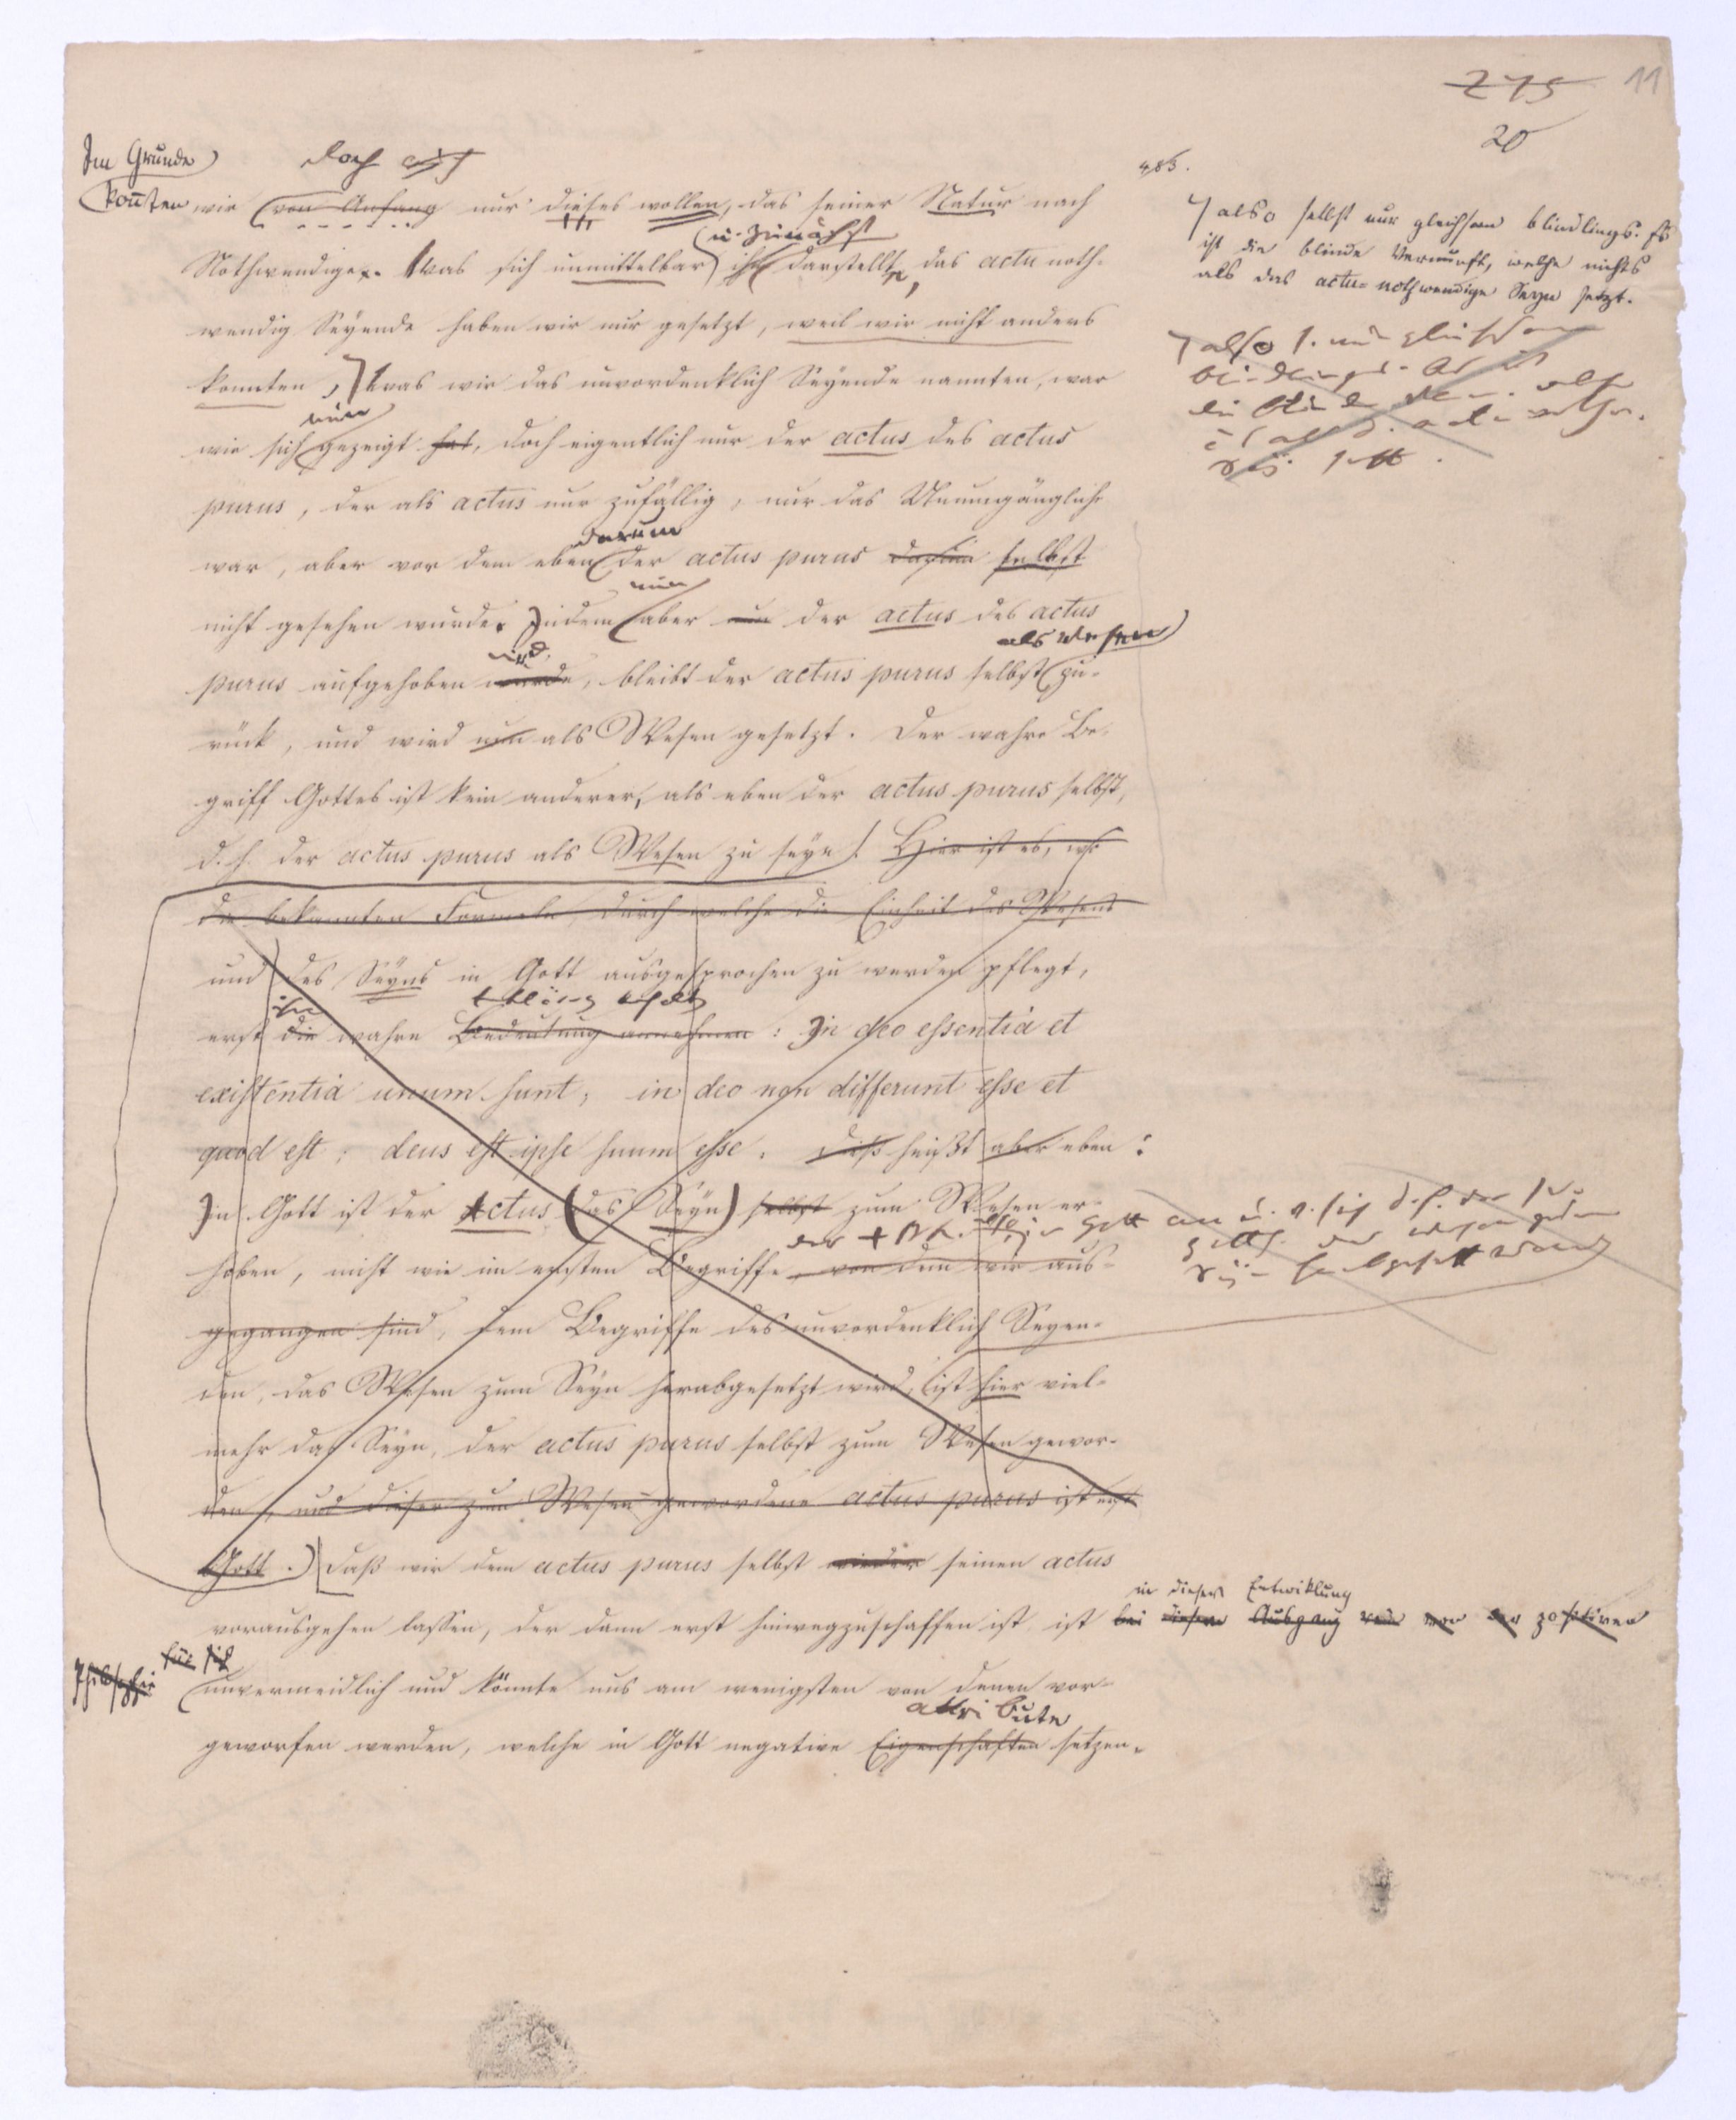 275 11
20
Im Grunde doch
485.
konnten wir von Anfang nur dieses wollen, das seiner Natur nach
u. zunächst
Nothwendige. Was sich unmittelbar darstellte, das actu noth-
wendig Seyende haben wir nur gesetzt, weil wir nicht anders
konnten, was wir das unvordenklich Seyende nannten, war
nun
wie sich gezeigt hat, doch eigentlich nur der actus des actus
purus, der als actus nur zufällig, nur das Unumgängliche
darum
war, aber vor dem eben der actus purus selbst
nun
nicht gesehen wurde. Indem aber nun der actus des actus
wird als Wesen
purus aufgehoben wurde, bleibt der actus purus selbst zu-
rück, und wird nun als Wesen gesetzt. Der wahre Be-
griff Gottes ist kein anderer, als eben der actus purus selbst,
d. h. der actus purus als Wesen zu seyn. Hier ist es, wo
die bekannten Formeln durch welche die Einheit des Wesens
und des Seyns in Gott ausgesprochen zu werden pflegt,
ihre
erst die wahre Bedeutung annehmen: In deo essentia et
existentia unum sunt, in deo non differunt esse et
quod est, deus est ipse suum esse. dieß heißt aber eben:
In Gott ist der Actus (das Seyn) selbst zum Wesen er-
hoben, nicht wie im ersten Begriffe, von dem wir aus-
gegangen sind, dem Begriffe des unvordenklich Seyen-
den, das Wesen zum Seyn herabgesetzt wird, ist hier viel-
mehr das Seyn, der actus purus selbst zum Wesen gewor-
den, und dieser zum Wesen gewordene actus purus ist erst
Gott.) Daß wir dem actus purus selbst wieder seinen actus
in dieser Entwiklung
vorausgehen lassen, der dann erst hinwegzuschaffen ist, ist bei diesem Ausgang von der positiven
für sich
Philosophie unvermeidlich und könnte uns am wenigsten von denen vor-
attribute
geworfen werden, welche in Gott negative Eigenschaften setzen.
also selbst nur gleichsam blindlings. Es
ist die blinde Vernunft, welche nichts
als das actu-nothwendige Seyn setzt.